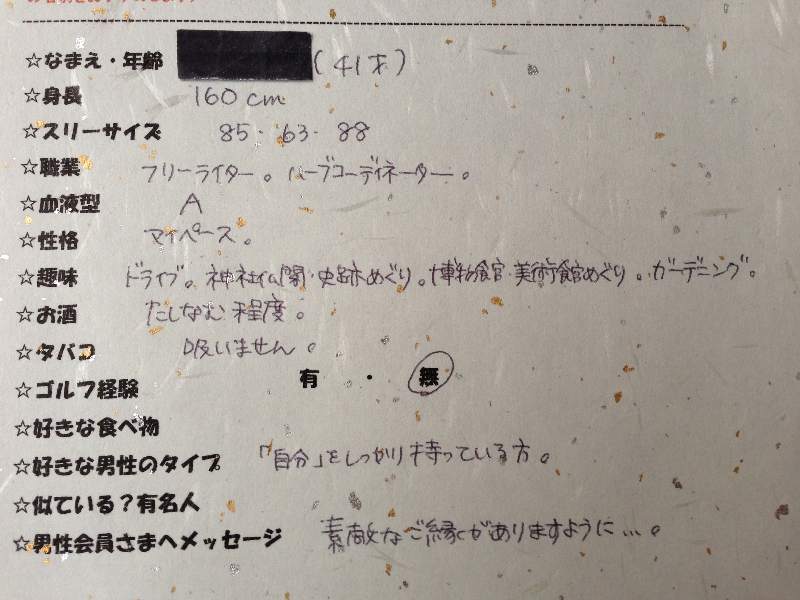 ☆なまえ・年齢 (41才)
☆身長 160cm
☆スリーサイズ 85・63・88
☆職業 フリーライター。ハーブコーディネーター。
☆血液型 A
☆性格 マイペース。
☆趣味 ドライブ。神社仏閣・史跡めぐり。博物館・美術館めぐり。ガーデニング。
☆お酒 たしなむ程度。
☆タバコ 吸いません。
☆ゴルフ経験 有・無
☆好きな食べ物
☆好きな男性のタイプ 「自分」をしっかり持っている方。
☆似ている?有名人
☆男性会員さまへメッセージ 素敵なご縁がありますように…。